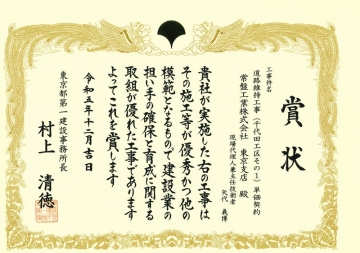 賞状
工事件名
道路維持工事(千代田工区その1)単価契約
常盤工業株式会社 東京支店 殿
現場代理人兼主任技術者
矢代 義博
貴社が実施した右の工事は
その施工等が優秀かつ他の
模範となるもので建設業の
担い手の確保と育成に関する
取組が優れた工事であります
よってこれを賞します
令和五年十二月吉日
東京都第一建設事務所長
村上 清徳